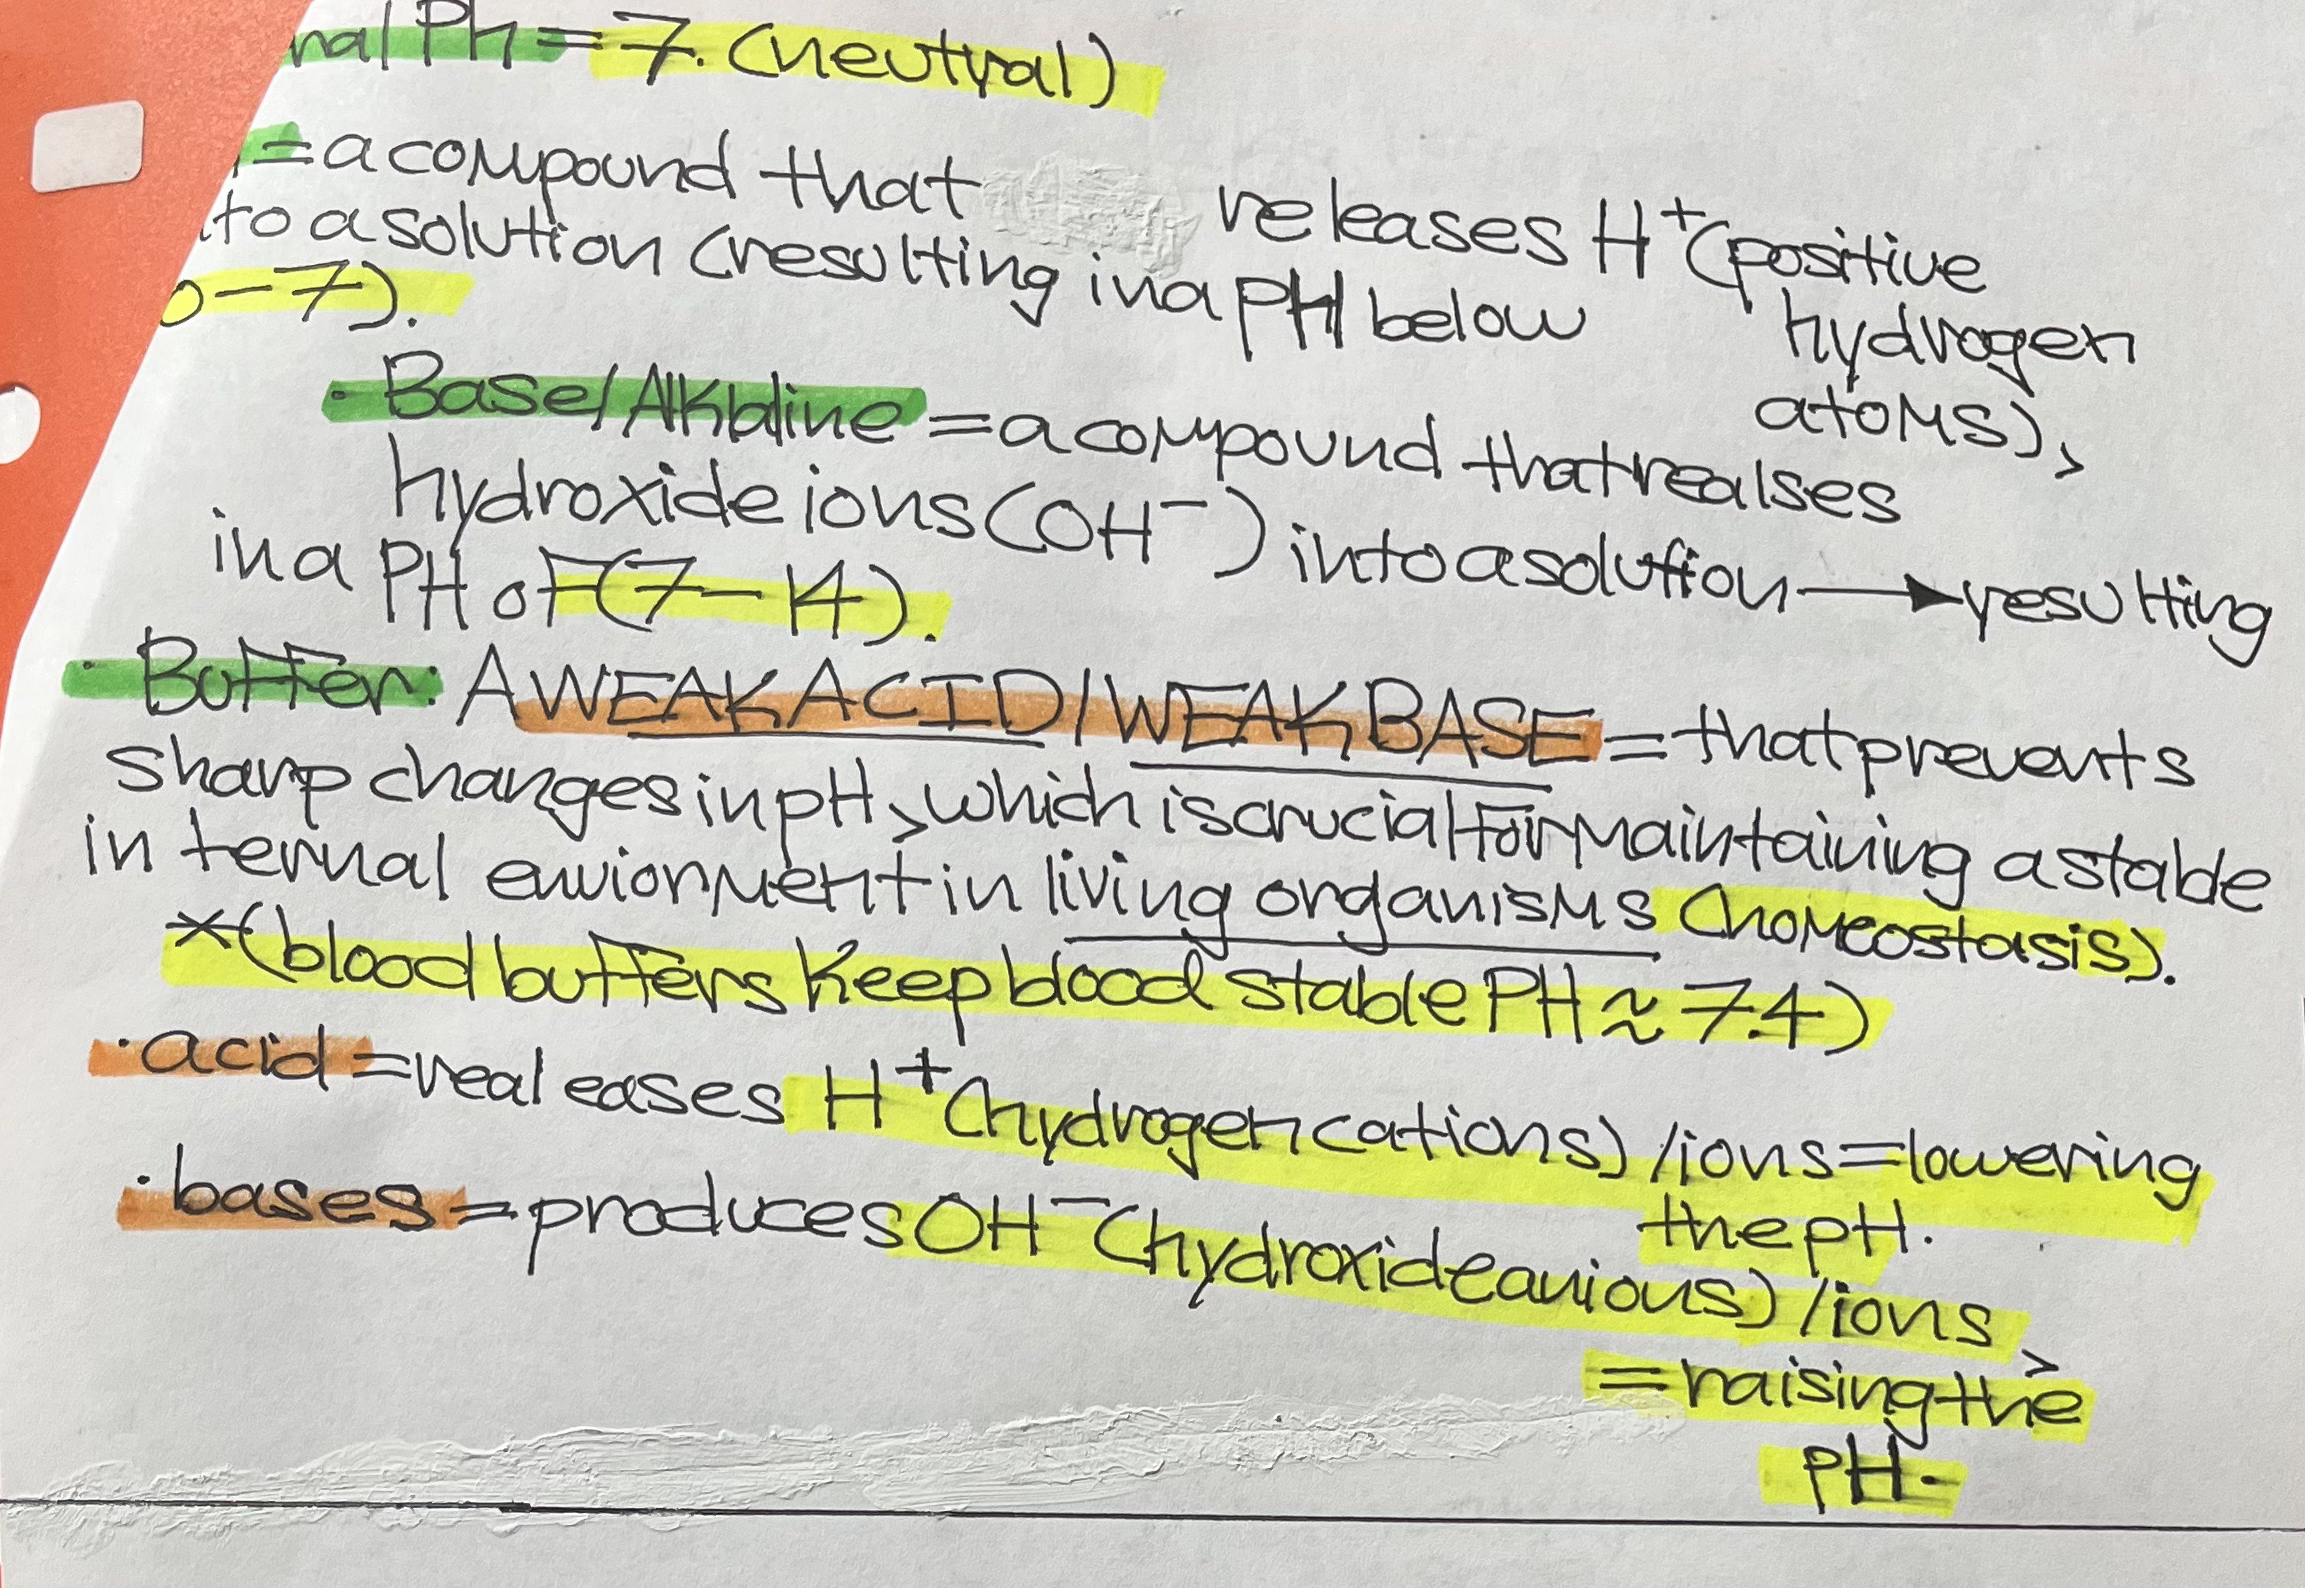 nal Ph = 7. (neutral)
= a compound that releases H⁺ (positive
hydrogen
atoms),
to a solution (resulting in a pH below
0-7).
· Base/Alkaline = a compound that realses
hydroxide ions (OH⁻) into a solution → resulting
in a PH of (7-14).
· Buffer: A WEAK ACID/WEAK BASE = that prevents
sharp changes in pH, which is crucial for maintaining a stable
internal enviornment in living organisms (homeostasis).
*(blood buffers keep blood stable PH ≈ 7.4)
· acid = realeases H⁺ (hydrogen cations) /ions = lowering
the pH.
· bases = produces OH⁻ (hydroxide anions) /ions,
= raising the
PH.